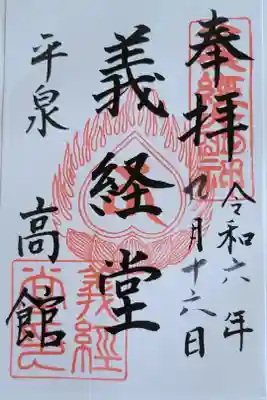 奉拝
令和六年
九月十六日
義経堂
平泉
高館
義經